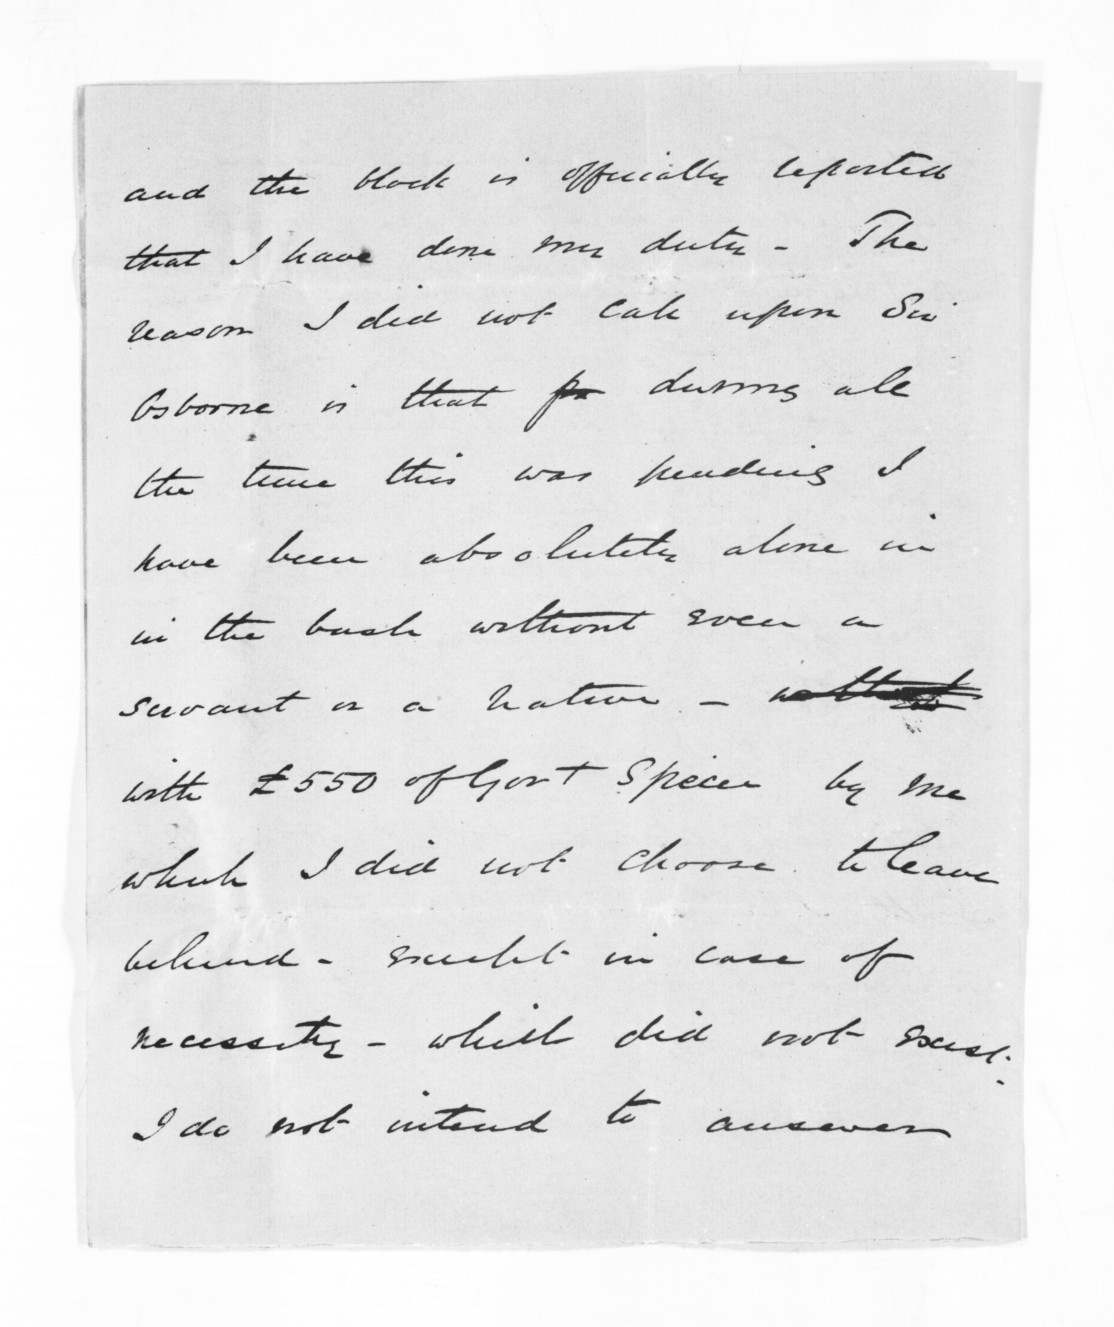 and the block is officially reported
that I have done my duty - The
reason I did not call upon Sir
Osborne is that during all
the time this was pending I
have been absolutely alone in
in the bush without even a
servant or a native -
with £550 of Govt Specie by me
which I did not choose to leave
behind - except in case of
necessity - which did not exist.
I do not intend to answer